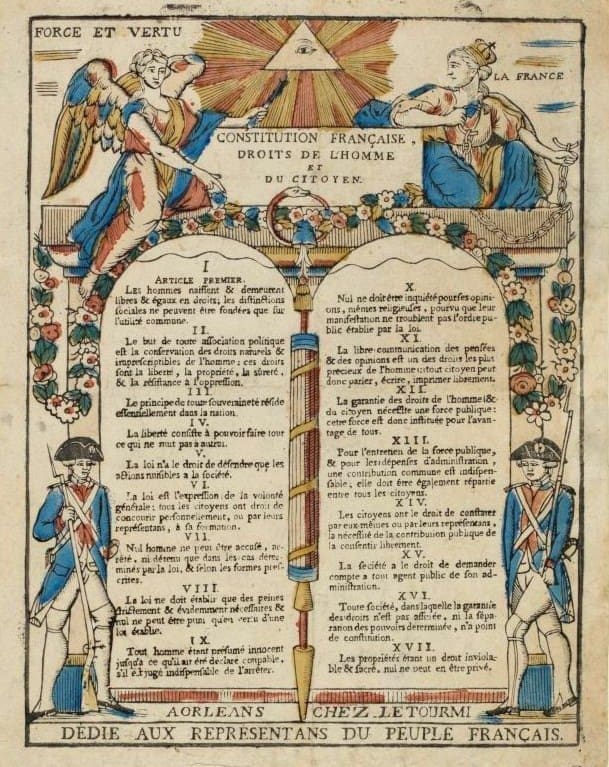 FORCE ET VERTU
LA FRANCE
CONSTITUTION FRANÇAISE,
DROITS DE L'HOMME
ET
DU CITOYEN.
I
ARTICLE PREMIER.
Les hommes naissent & demeurent
libres & égaux en droits; les distinctions
sociales ne peuvent être fondées que sur
l'utilité commune.
II.
Le but de toute association politique
est la conservation des droits naturels &
imprescriptibles de l'homme; ces droits
sont la liberté, la propriété, la sûreté,
& la résistance à l'oppression.
III.
Le principe de toute souveraineté réside
essentiellement dans la nation.
IV.
La liberté consiste à pouvoir faire tout
ce qui ne nuit pas à autrui.
V.
La loi n'a le droit de défendre que les
actions nuisibles a la société.
VI.
La loi est l'expression de la volonté
générale; tous les citoyens ont droit de
concourir personnellement, ou par leurs
représentans, à sa formation.
VII.
Nul homme ne peut être accusé, ar-
rêté, ni détenu que dans les cas déter-
minés par la loi, & selon les formes pres-
crites.
VIII.
La loi ne doit établir que des peines
strictement & évidemment nécessaires &
nul ne peut être puni qu'en vertu d'une
loi établie.
IX.
Tout homme étant présumé innocent
jusqu'a ce qu'il ait été déclaré coupable,
s'il est jugé indispensable de l'arrêter.
X.
Nul ne doit être inquiété pour ses opini-
ons, mêmes religieuses, pourvu que leur
manifestation ne troublent pas l'ordre pu-
blic établie par la loi.
XI.
La libre communication des pensées
& des opinions est un des droits les plus
précieux de l'homme: tout citoyen peut
donc parler, écrire, imprimer librement.
XII.
La garantie des droits de l'homme &
du citoyen nécessite une force publique:
cette force est donc instituée pour l'avan-
tage de tous.
XIII.
Pour l'entretien de la force publique,
& pour les dépenses d'administration,
une contribution commune est indispen-
sable; elle doit être également répartie
entre tous les citoyens.
XIV.
Les citoyens ont le droit de constater
par eux-mêmes ou par leurs représentans,
la nécessité de la contribution publique de
la consentir librement.
XV.
La société a le droit de demander
compte a tout agent public de son ad-
ministration.
XVI.
Toute société, dans laquelle la garantie
des droits n'est pas assurée, ni la sépa-
ration des pouvoirs déterminée, n'a point
de constitution.
XVII.
Les propriétés étant un droit inviola-
ble & sacré, nul ne peut en être privé.
A ORLEANS CHEZ LETOURMI
DÉDIÉ AUX REPRÉSENTANS DU PEUPLE FRANÇAIS.